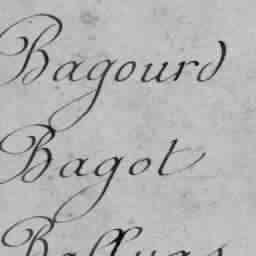 Bagourd
Bagot